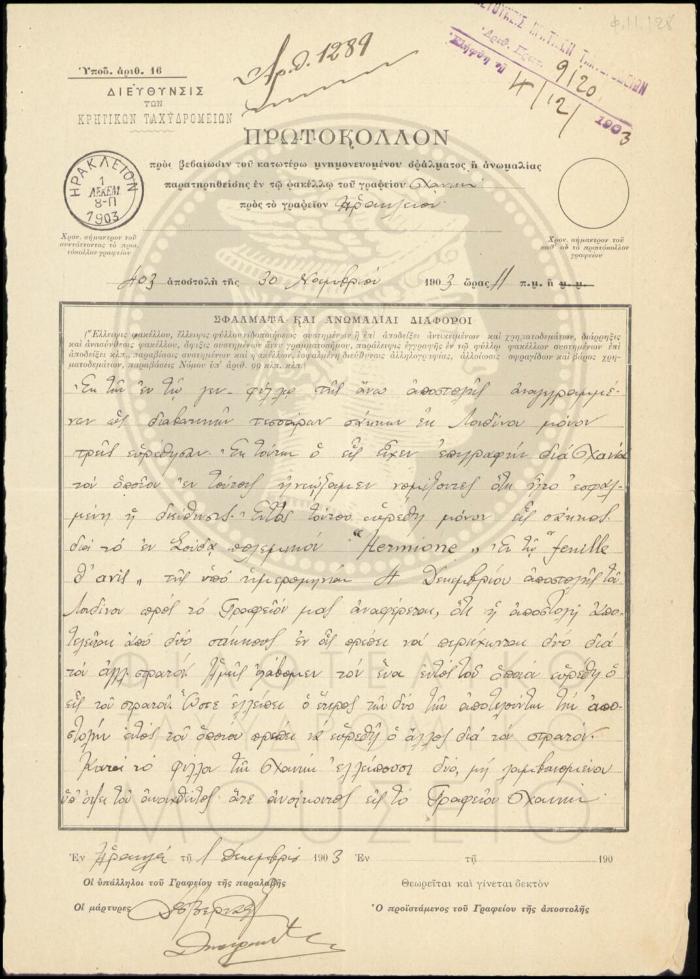 Φ.11.128
Ἀρ. Θ. 1289
Ὑποδ. ἀριθ. 16
ΔΙΕΥΘΥΝΣΙΣ
ΤΩΝ
ΚΡΗΤΙΚΩΝ ΤΑΧΥΔΡΟΜΕΙΩΝ
ΚΡΗΤΙΚΩΝ ΤΑΧΥΔΡΟΜΕΙΩΝ
Ἀριθ. Πρωτ. 9120
Ἐλήφθη τῇ 4/12/1903
ΠΡΩΤΟΚΟΛΛΟΝ
πρὸς βεβαίωσιν τοῦ κατωτέρω μνημονευομένου σφάλματος ἢ ἀνωμαλίας
παρατηρηθείσης ἐν τῷ φακέλλῳ τοῦ γραφείου Χανίων
πρὸς τὸ γραφεῖον Ἡρακλείου
ΗΡΑΚΛΕΙΟΝ
1
ΔΕΚΕΜ
8-Π
1903
Χρον. σήμαντρον τοῦ
συντάττοντος τὸ πρω-
τόκολλον γραφείου
Χρον. σήμαντρον τοῦ
καθ' οὗ τὸ πρωτόκολλον
γραφείου
403 ἀποστολὴ τῆς 30 Νοεμβρίου 1903 ὥρας 11 π.μ. ἢ μ.μ.
ΣΦΑΛΜΑΤΑ ΚΑΙ ΑΝΩΜΑΛΙΑΙ ΔΙΑΦΟΡΟΙ
(Ἔλλειψις φακέλλου, ἔλλειψις φύλλου εἰδοποιήσεως συστημένων ἢ ἐπὶ ἀποδείξει ἀντικειμένων καὶ χρηματοδεμάτων, διάρρηξις
καὶ ἀνασύνθεσις φακέλλου, ἄφιξις συστημένων ἄνευ γραμματοσήμου, παράλειψις ἐγγραφῆς ἐν τῷ φύλλῳ φακέλλων συστημένων ἐπὶ
ἀποδείξει κλπ., παραβίασις συστημένων καὶ φακέλλων, ἐσφαλμένη διεύθυνσις ἀλληλογραφίας, ἀλλοίωσις σφραγίδων καὶ βάρος χρη-
ματοδεμάτων, παραβάσεις Νόμου ὑπ' ἀριθ. 99 κλπ. κλπ.)
Ἐκ τῶν ἐν τῷ γεν. φύλλῳ τῆς ἄνω ἀποστολῆς ἀναγραμμέ-
νων ὡς διαβατικῶν τεσσάρων σάκκων ἐκ Λονδίνου μόνον
τρεῖς εὑρέθησαν. Ἐκ τούτων ὁ εἷς εἶχεν ἐπιγραφὴν διὰ Χανία
τὸν ὁποῖον ἐν τούτοις ἠνοίξαμεν νομίζοντες ὅτι ἦτο ἐσφαλ-
μένη ἡ διεύθυνσις. Ἐντὸς τούτου εὑρέθη μόνον εἷς σάκκος
διὰ τὸ ἐν Σούδᾳ πολεμικὸν "Hermione" Ἐν τῇ "feuille
d'avis" τῆς ὑπὸ ἡμερομηνίαν 4 Δεκεμβρίου ἀποστολῆς τοῦ
Λονδίνου πρὸς τὸ Γραφεῖόν μας ἀναφέρεται, ὅτι ἡ ἀποστολὴ ἀπο-
τελεῖται ἀπὸ δύο σάκκους ἐν οἷς πρέπει νὰ περιέχωνται δύο διὰ
τὸν ἀγγλ. στρατόν. Ἡμεῖς ἐλάβομεν τὸν ἕνα ἐντὸς τοῦ ὁποίου εὑρέθη ὁ
εἷς τοῦ στρατοῦ. Ὥστε ἐλλείπει ὁ ἕτερος τῶν δύο τῶν ἀποτελούντων τὴν ἀπο-
στολὴν ἐντὸς τοῦ ὁποίου πρέπει νὰ εὑρέθη ὁ ἄλλος διὰ τὸν στρατόν.
Κατὰ τὸ φύλλον τῶν Χανίων ἐλλείπουσι δύο, μὴ λαμβανομένου
ὑπ' ὄψει τοῦ ἀνοιχθέντος ἅτε ἀνήκοντος εἰς τὸ Γραφεῖον Χανίων.
Ἐν Ἡρακλείῳ τῇ 1 Δεκεμβρίου 1903 Ἐν τῇ 190
Οἱ ὑπάλληλοι τοῦ Γραφείου τῆς παραλαβῆς
Θεωρεῖται καὶ γίνεται δεκτὸν
Οἱ μάρτυρες
Ὁ προϊστάμενος τοῦ Γραφείου τῆς ἀποστολῆς
ΦΙΛΟΤΕΛΙΚΟ
ΤΑΧΥΔΡΟΜΙΚΟ
ΜΟΥΣΕΙΟ